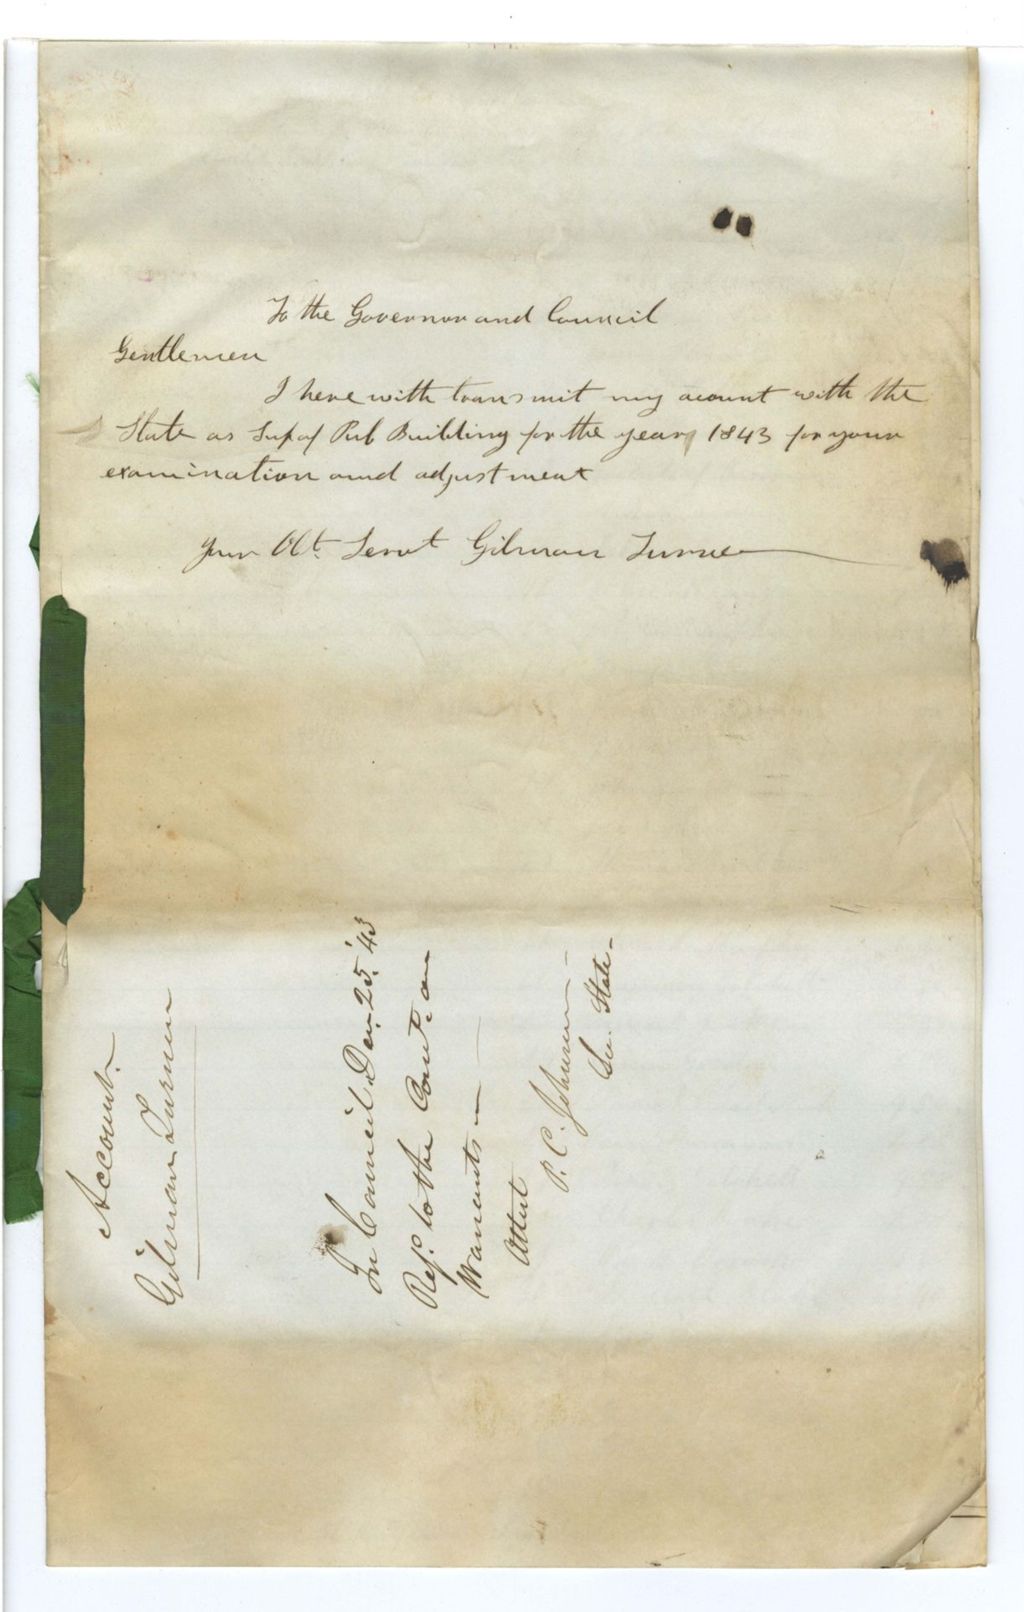 To the Governor and Council
Gentlemen
I here with transmit my acount with the
State as Sup of Pub Building for the year 1843 for your
examination and adjustment
Your Obt. Servt Gilman Turner
Account.
Gilman Turner
In Council Dec. 25. '43
Ref. to the Comt. on
Warrants
Attest
P. C. Johnson
Sec. State